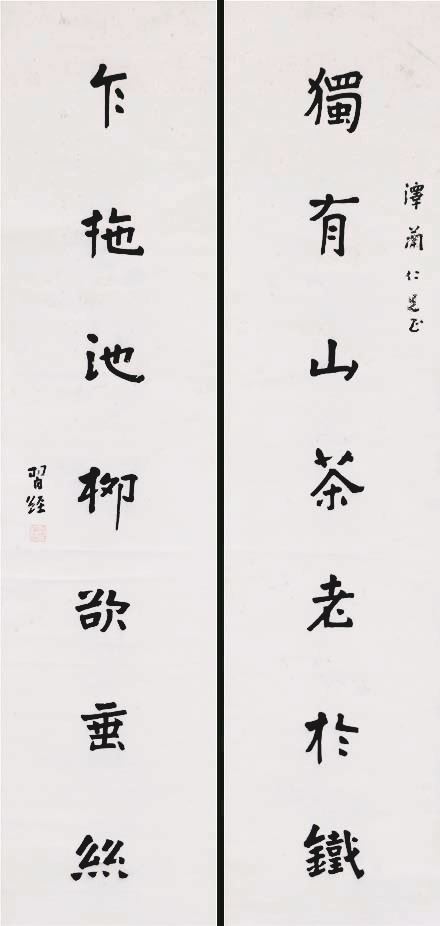 潭蘭仁兄正
獨有山茶老於鐵
乍拖池柳欲垂絲
習經